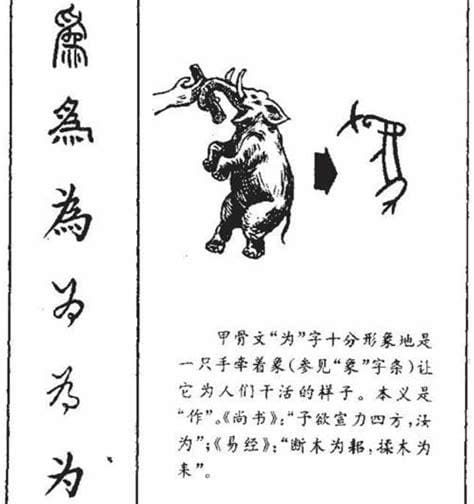 爲
爲
為
为
为
为
甲骨文“为”字十分形象地是
一只手牵着象(参见“象”字条)让
它为人们干活的样子。本义是
“作”。《尚书》:“子欲宣力四方,汝
为”;《易经》:“断木为耜,揉木为
耒”。